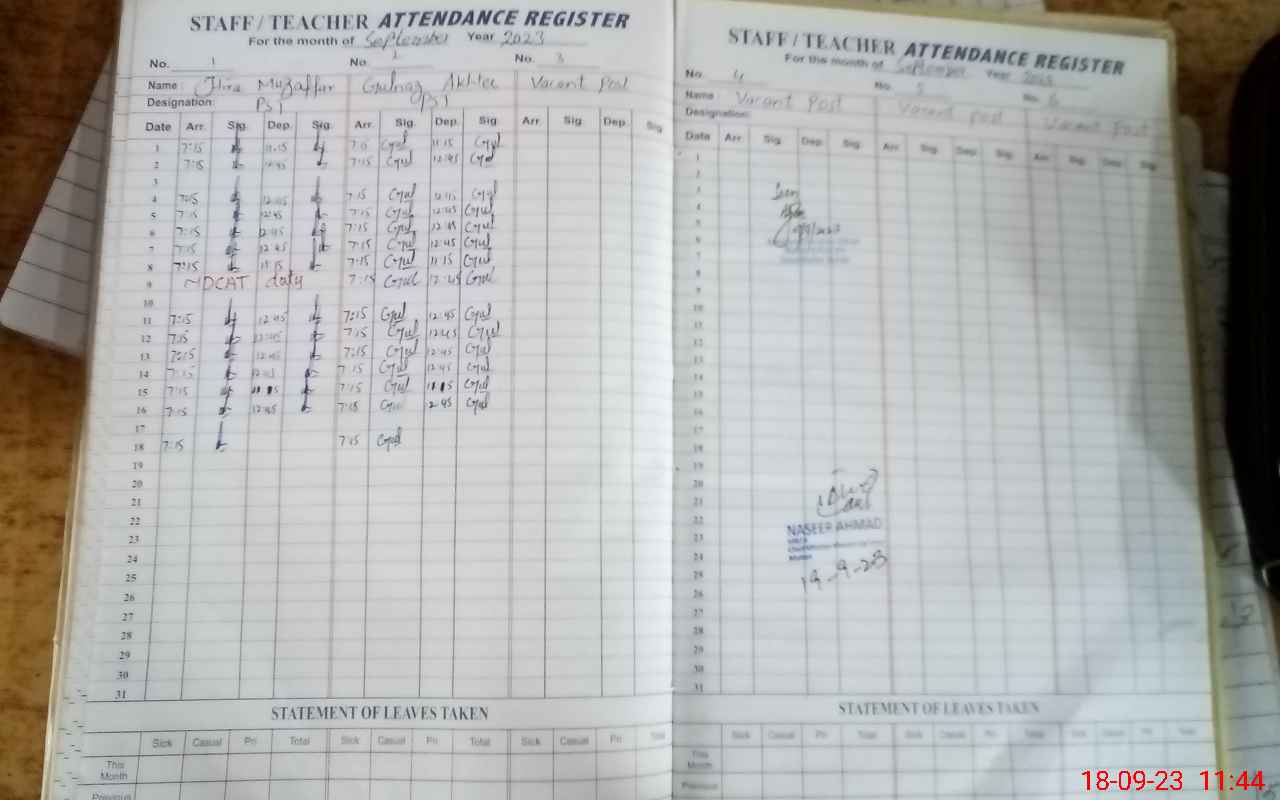 STAFF / TEACHER ATTENDANCE REGISTER
For the month of September Year 2023
No. 1 No. 2 No. 3
Name: Muzaffar Gulnaz Akhtee Vacant Post
Designation: PST PST
Date Arr. Sig. Dep. Sig. Arr. Sig. Dep. Sig. Arr. Sig. Dep. Sig
1 7:15 11:15 Gul 11:15 Gul
2 7:15 12:45 7:15 Gul 12:45 Gul
3
4 7:15 12:45 7:15 Gul 12:45 Gul
5 7:15 12:45 7:15 Gul 12:45 Gul
6 7:15 12:45 7:15 Gul 12:45 Gul
7 7:15 12:45 7:15 Gul 12:45 Gul
8 7:15 11:15 7:15 Gul 11:15 Gul
9 MDCAT duty 7:15 Gul 12:45 Gul
10
11 7:15 12:45 7:15 Gul 12:45 Gul
12 7:15 12:45 7:15 Gul 12:45 Gul
13 7:15 12:45 7:15 Gul 12:45 Gul
14 7:15 12:45 7:15 Gul 12:45 Gul
15 7:15 7:15 Gul Gul
16 7:15 12:45 7:15 Gul 2:45 Gul
17
18 7:15 7:15 Gul
19
20
21
22
23
24
25
26
27
28
29
30
31
STATEMENT OF LEAVES TAKEN
Sick Casual Pri Total Sick Casual Pri Total Sick Casual Pri Total
This
Month
Previous
STAFF / TEACHER ATTENDANCE REGISTER
For the month of September Year 2023
No. 4 No. 5 No. 6
Name: Vacant Post Vacant Post Vacant Post
Designation:
Date Arr. Sig. Dep. Sig. Arr. Sig. Dep. Sig. Arr. Sig. Dep. Sig.
1
2
3 Seen
4
5
6
7
8
9
10
11
12
13
14
15
16
17
18
19
20
21
22 NASEER AHMAD
23
24
25 19-9-23
26
27
28
29
30
31
STATEMENT OF LEAVES TAKEN
Sick Casual Pri Total Sick Casual Pri Total Sick Casual Pri Total
This
Month
Previous
18-09-23 11:44